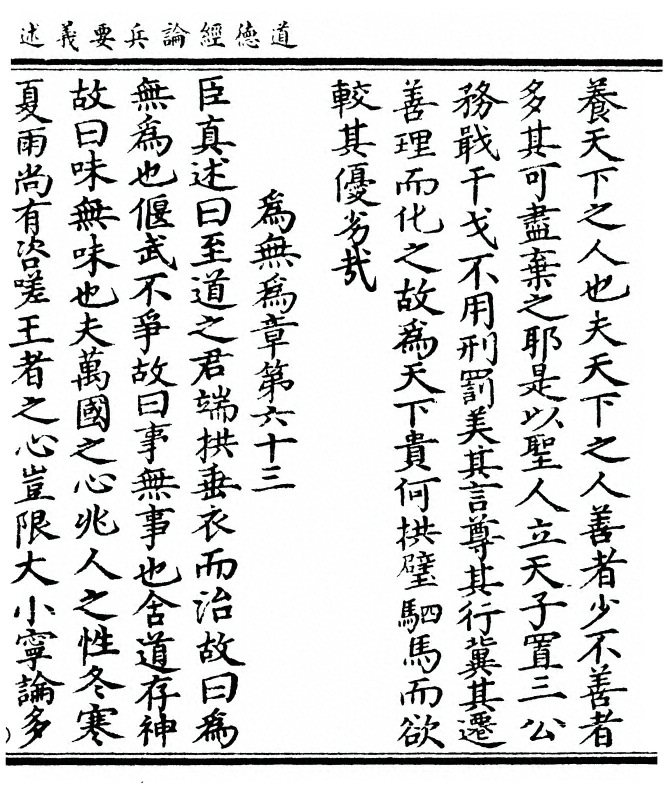 道德經論兵要義述
養天下之人也夫天下之人善者少不善者
多其可盡棄之耶是以聖人立天子置三公
務戢干戈不用刑罰美其言尊其行冀其遷
善理而化之故爲天下貴何拱璧駟馬而欲
較其優劣哉
爲無爲章第六十三
臣真述曰至道之君端拱垂衣而治故曰爲
無爲也偃武不爭故曰事無事也含道存神
故曰味無味也夫萬國之心兆人之性冬寒
夏雨尚有咨嗟王者之心豈限大小寧論多